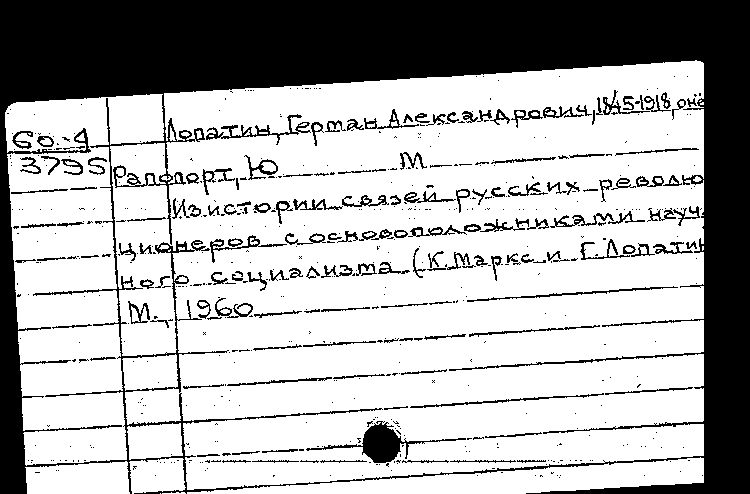 Лопатин, Герман Александрович, 1845-1918, о нём
60-4
3795
Рапопорт, Ю М
Из истории связей русских револю
ционеров с основоположниками науч
ного социализма (К. Маркс и Г. Лопатин
М., 1960